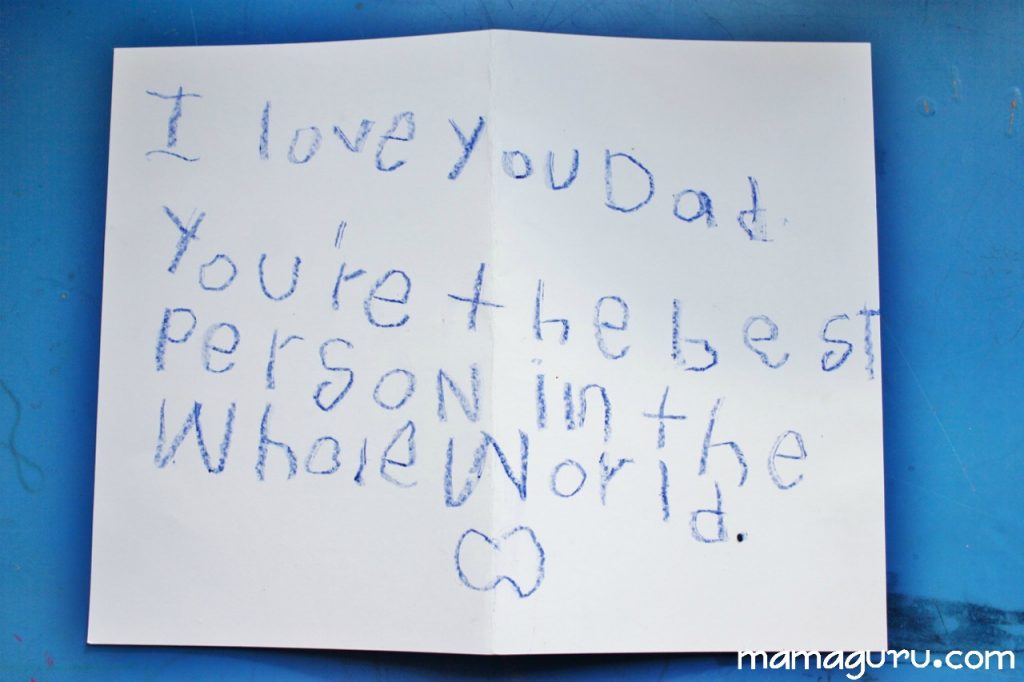 I love you Dad.
You're the best
Person in the
Whole World.
mamaguru.com